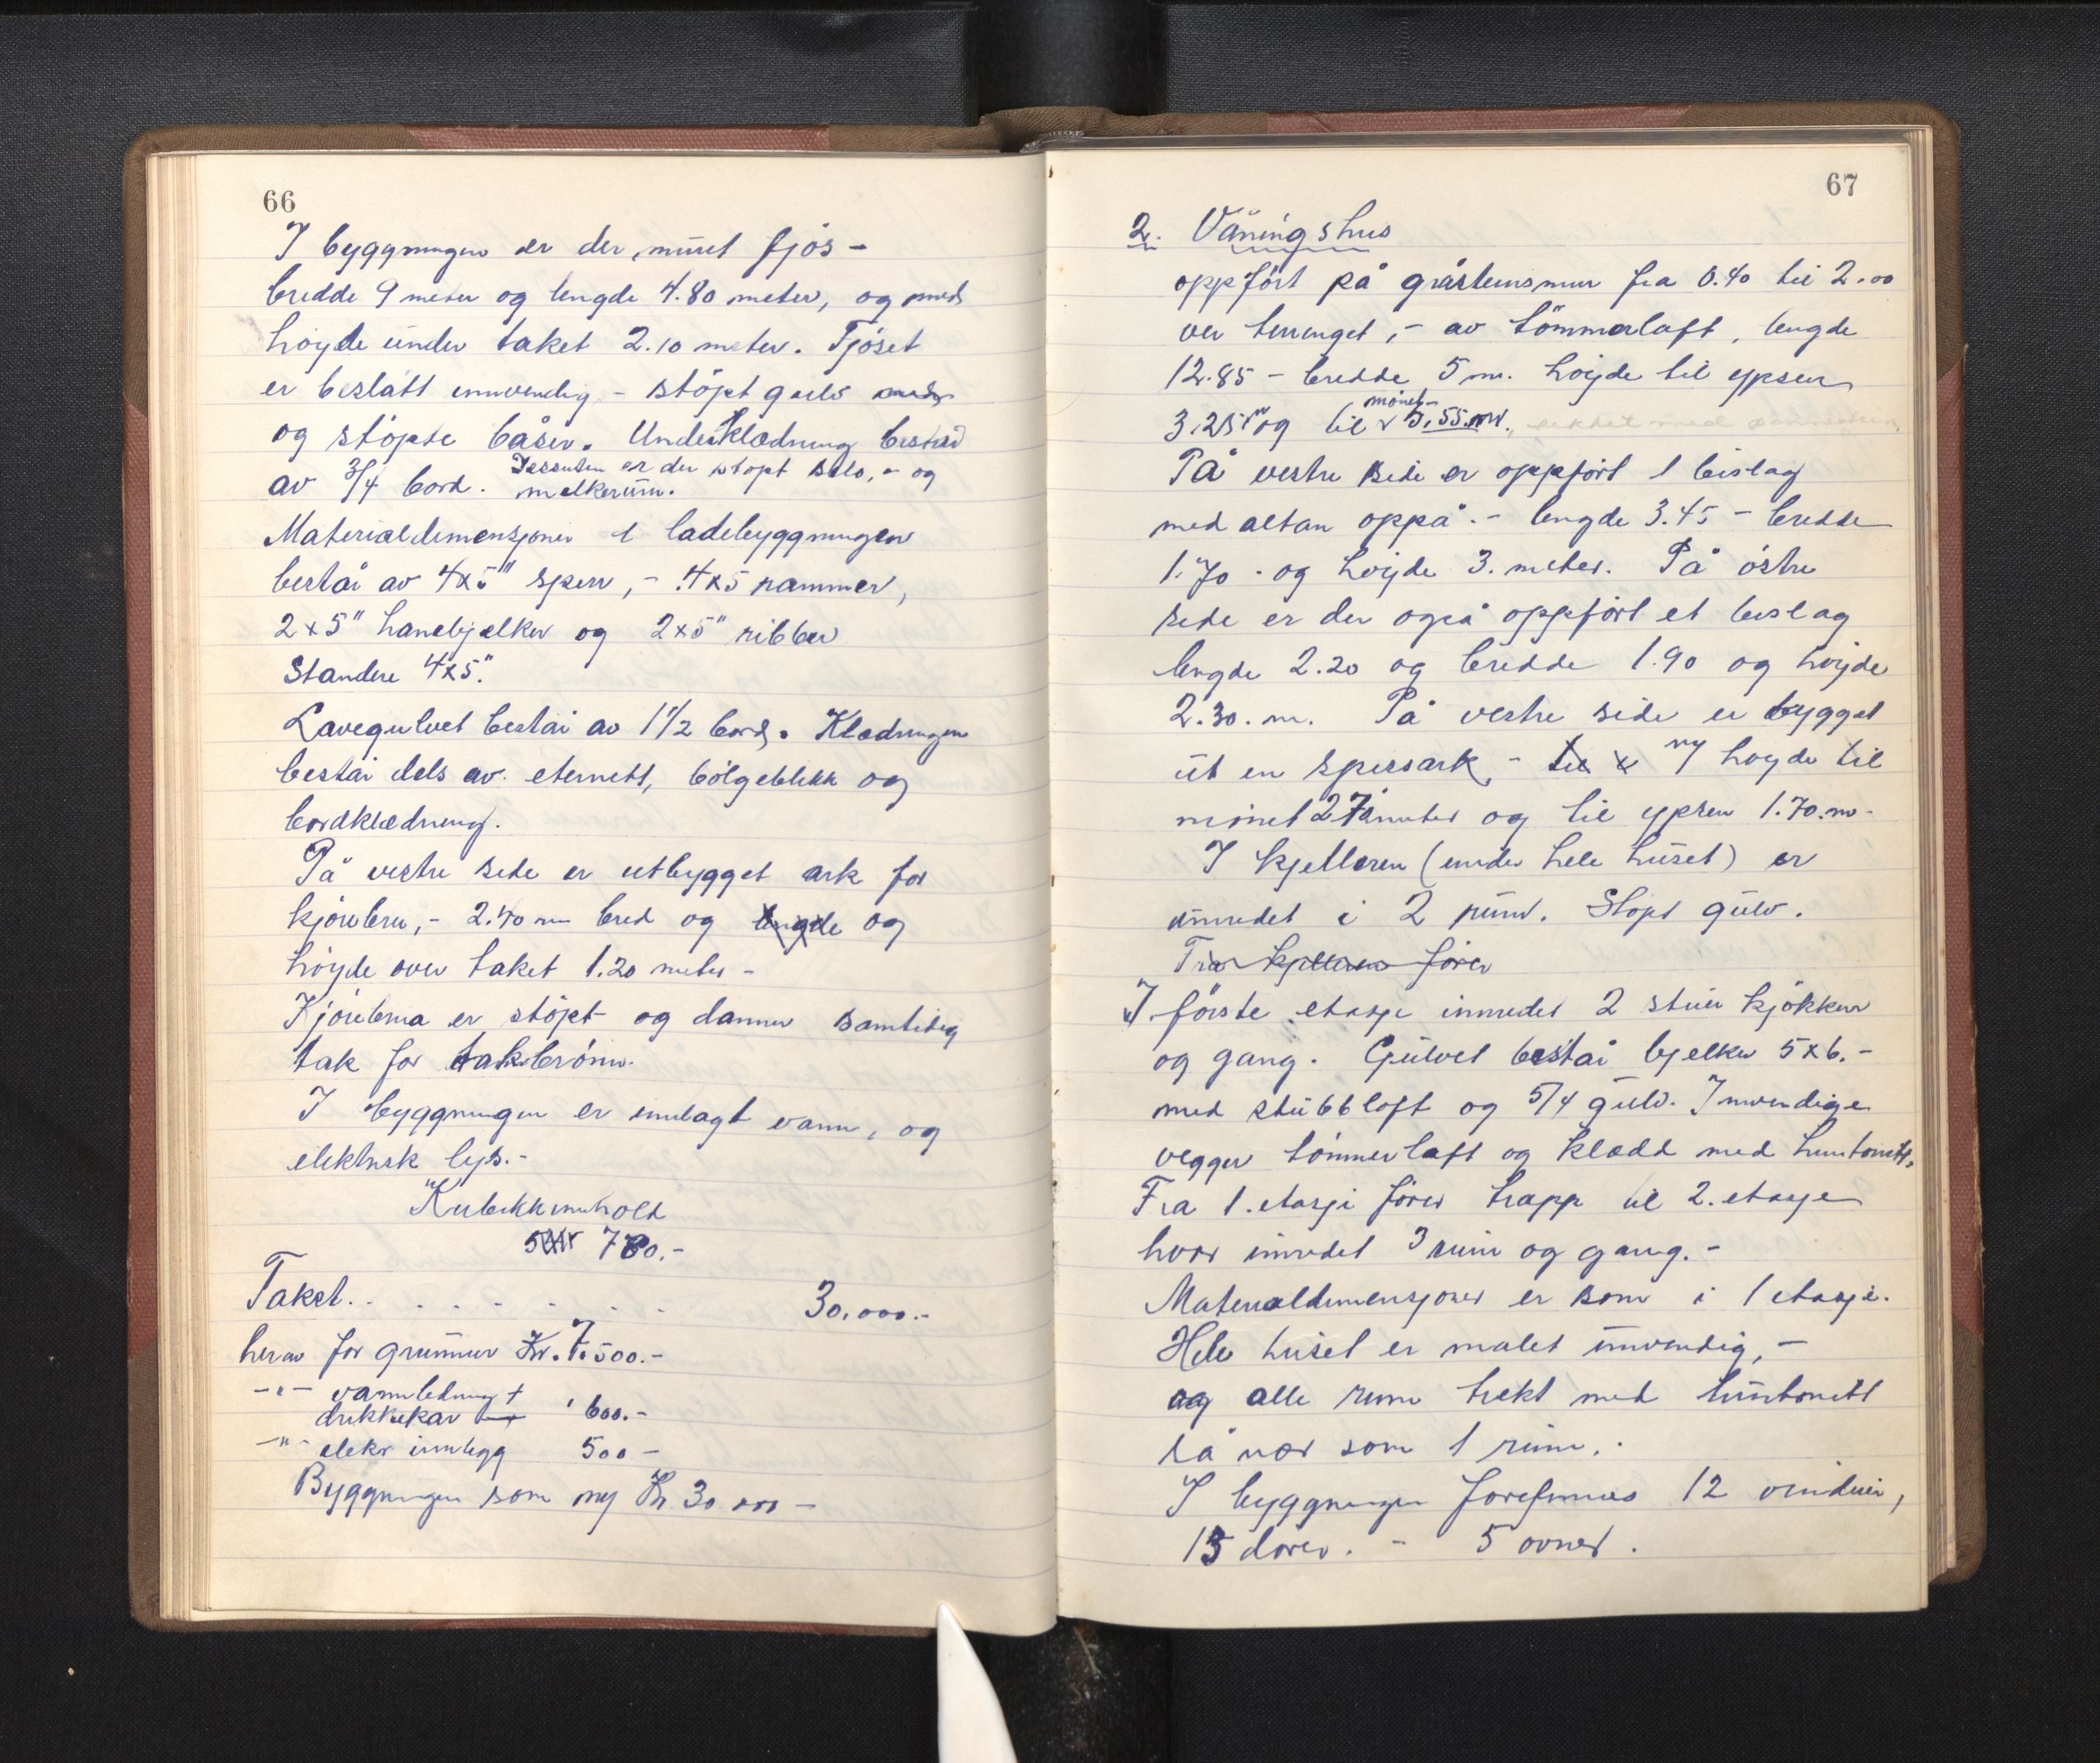 66
I byggningen er der muret fjøs -
bredde 9 meter og lengde 4.80 meter, og med
høyde under taket 2.10 meter. Fjøset
er beslått innvendig - støpt gulv
og støpte båser. Underklædning består
av 3/4 bord. Dessuten er der støpt silo, - og
melkerum.
Materialdimensjoner i ladebyggningen
består av 4x5" sperr, - 4x5 rammer,
2x5" hanebjelker og 2x5" ribber
Standere 4x5".
Lavegulvet består av 1 1/2 bord. Klædningen
består dels av eternett, bølgeblikk og
bordklædning.
På vestre side er utbygget ark for
kjørebru, - 2.40 m bred og lengde og
høyde over taket 1.20 meter -
Kjørebrua er støpt og danner samtidig
tak for
I byggningen er innlagt vann, og
elektrisk lys. -
Kubikkinnhold
780.-
Takst . . . . . . . . 30.000.-
herav for grunnmur Kr. 7.500.-
-"- vannledning +
drikkekar " 600.-
-"- elekr innlegg 500 -
Byggningen som ny Kr 30 000 -
67
2. Våningshus
oppført på gråstensmur fra 0.40 til 2.00
over terrenget, - av tømmerlaft, lengde
12.85 - bredde 5 m. høyde til ypsen
3.25 m og til mønet 5.55 m.
På vestre side er oppført 1 bislag
med altan oppå. - lengde 3.45 - bredde
1.70 - og høyde 3. meter. På østre
side er der også oppført et bislag
lengde 2.20 og bredde 1.90 og høyde
2.30. m. På vestre side er bygget
ut en spersark, - høyde til
mønet meter og til ypsen 1.70. m -
I kjelleren (under hele huset) er
innredet i 2 rum. Støpt gulv.
Fra kjelleren fører
I første etasje innredet 2 stuer kjøkken
og gang. Gulvet består bjelker 5x6. -
med stubbloft og 5/4 gulv. Innvendige
vegger tømmerlaft og klædd med huntonitt.
Fra 1. etasje fører trapp til 2. etasje
hvor innredet 3 rum og gang. -
Materialdimensjoner er som i 1 etasje.
Hele huset er malet innvendig, -
og alle rum trekt med huntonitt
så nær som 1 rum. -
I byggningen forefinnes 12 vinduer,
13 dører. - 5 ovner.